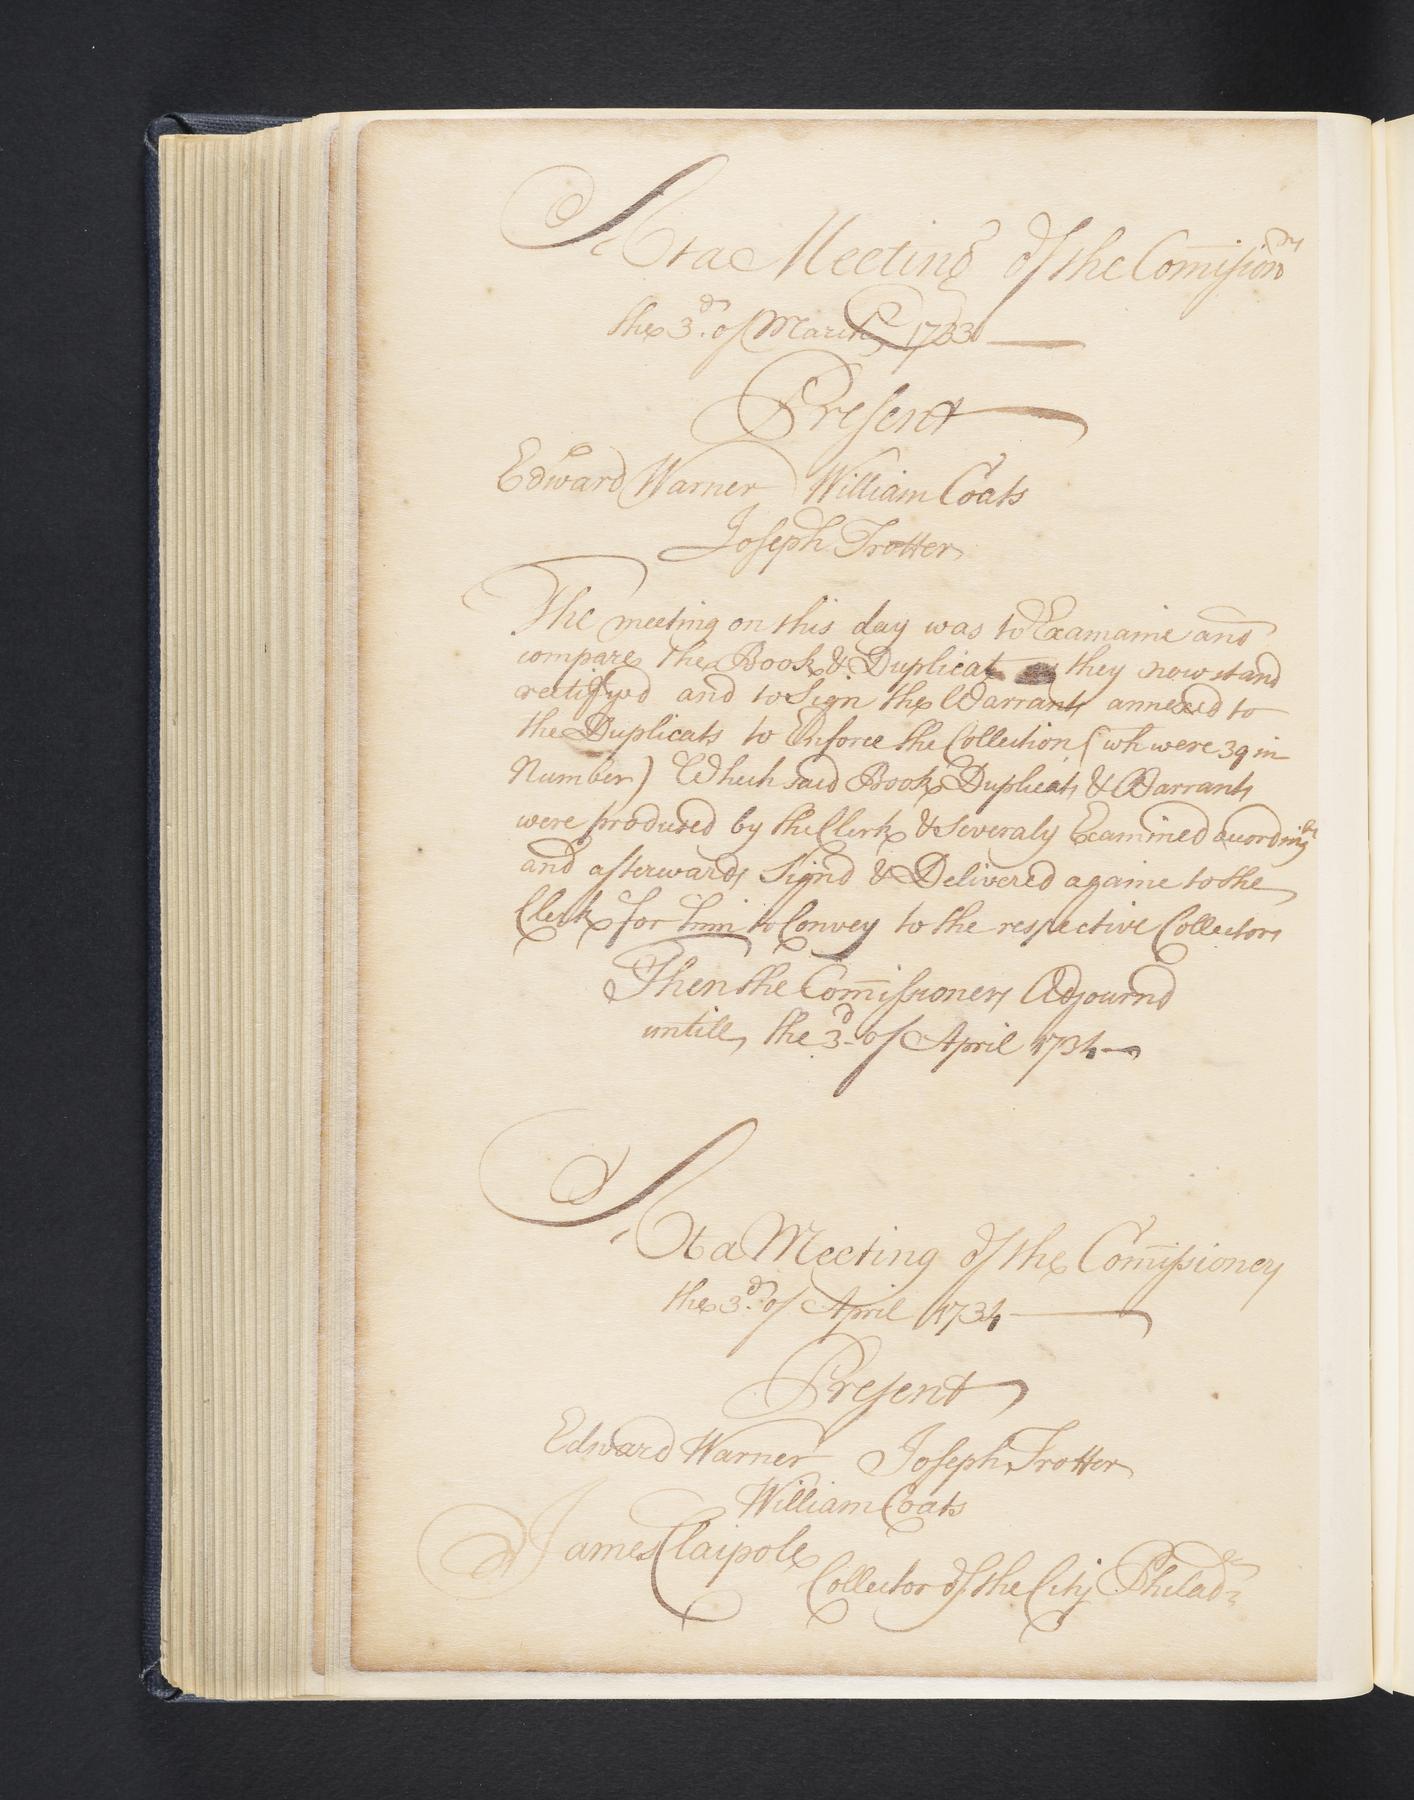 At a Meeting of the Com̄ision.rs
the 3.d of March 1733
Present
Edward Warner William Coats
Joseph Trotter
The meeting on this day was to Examaine and
compare the Book & Duplicat they now stand
rectifyed and to Sign the Warrants annexed to
the Duplicats to Enforce the Collection (wh were 39 in
Number) Which said Books Duplicats & Warrants
were produced by the Clerk & Severaly Examined acording
and afterwards Signd & Delivered againe to the
Clerk for him to Convey to the respective Collectors
Then the Com̄issioners Adjournd
untill the 3d of April 1734
At a Meeting of the Com̄issioners
the 3.d of April 1734
Present
Edward Warner Joseph Trotter
William Coats
James Claipole
Collector of the City Philad.a